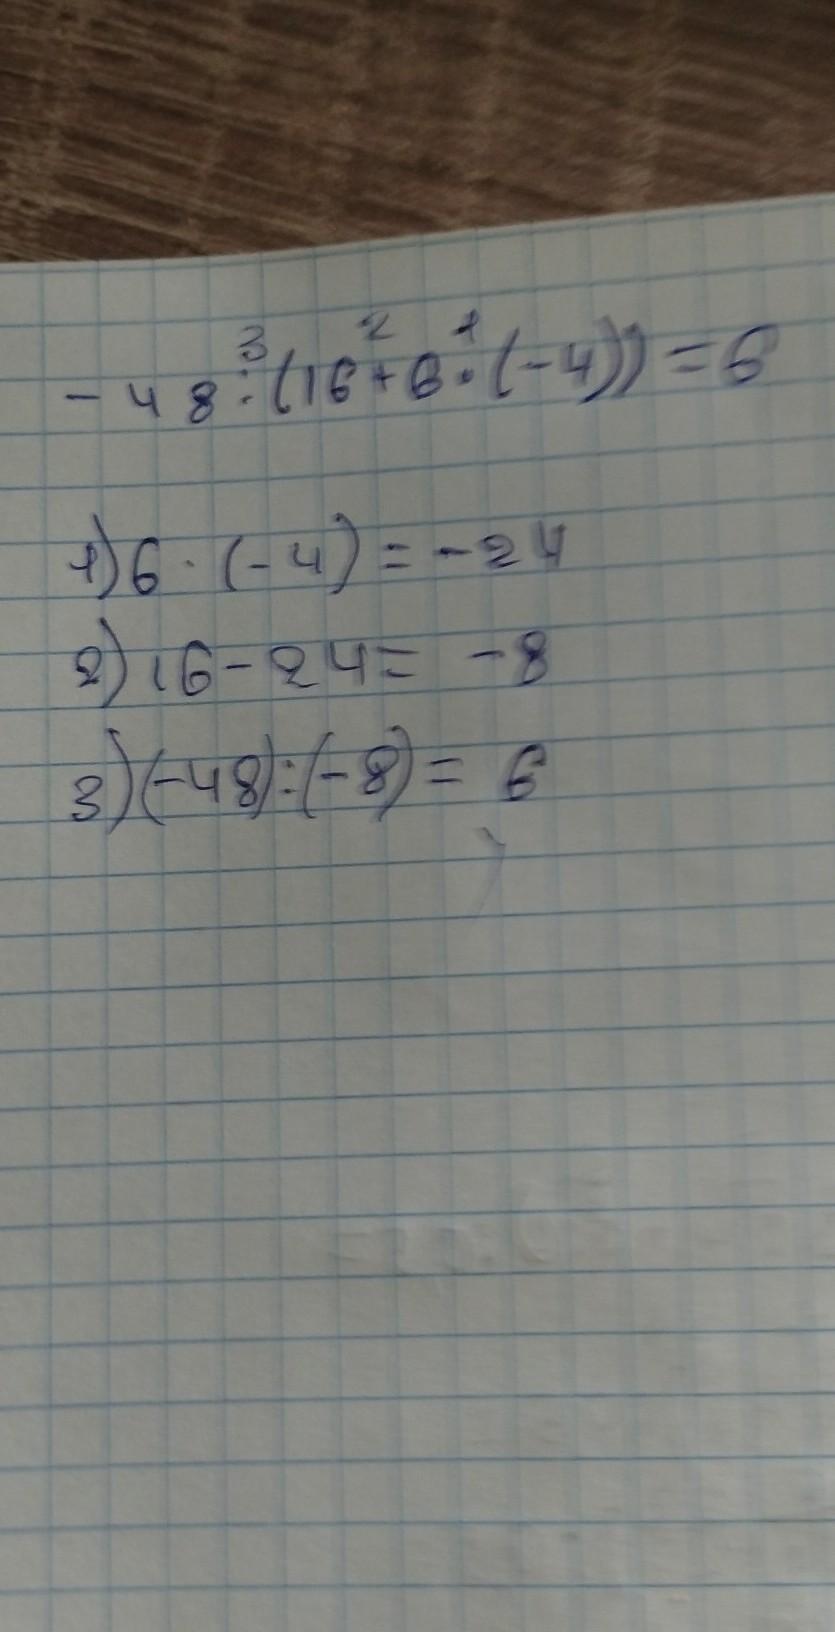 3 2 1
-48:(16+6·(-4))=6
1) 6·(-4)=-24
2) 16-24= -8
3) (-48):(-8)= 6